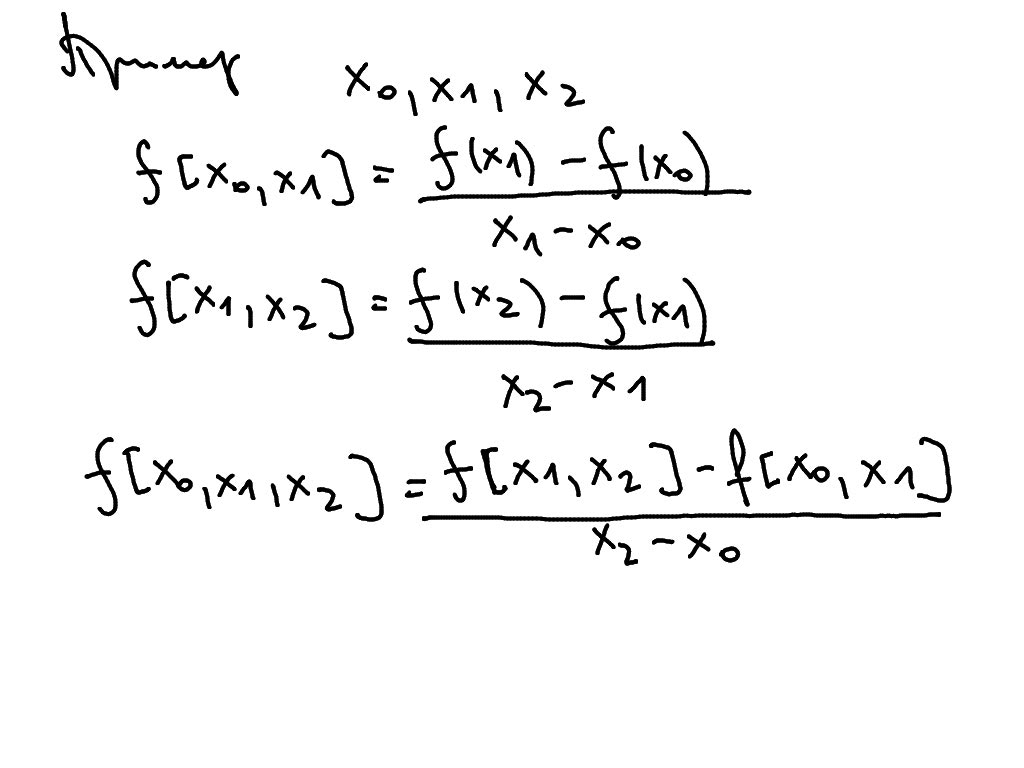 Пример
x₀, x₁, x₂
f[x₀, x₁] = (f(x₁) - f(x₀)) / (x₁ - x₀)
f[x₁, x₂] = (f(x₂) - f(x₁)) / (x₂ - x₁)
f[x₀, x₁, x₂] = (f[x₁, x₂] - f[x₀, x₁]) / (x₂ - x₀)